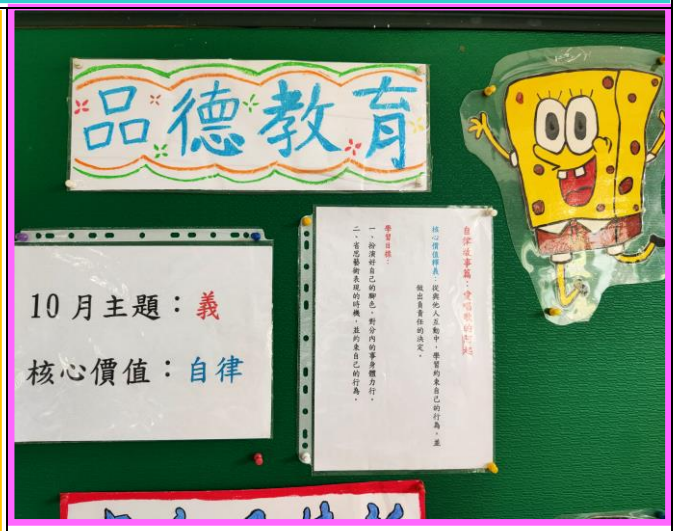 品德教育
10月主題：義
核心價值：自律
自律故事篇：愛唱歌的阿
核心價值釋義：從與他人互動中，學習約束自己的行為，並
做出負責任的決定。
學習目標：
一、扮演好自己的腳色，對分內的事身體力行。
二、省思藝術表現的時機，並約束自己的行為。